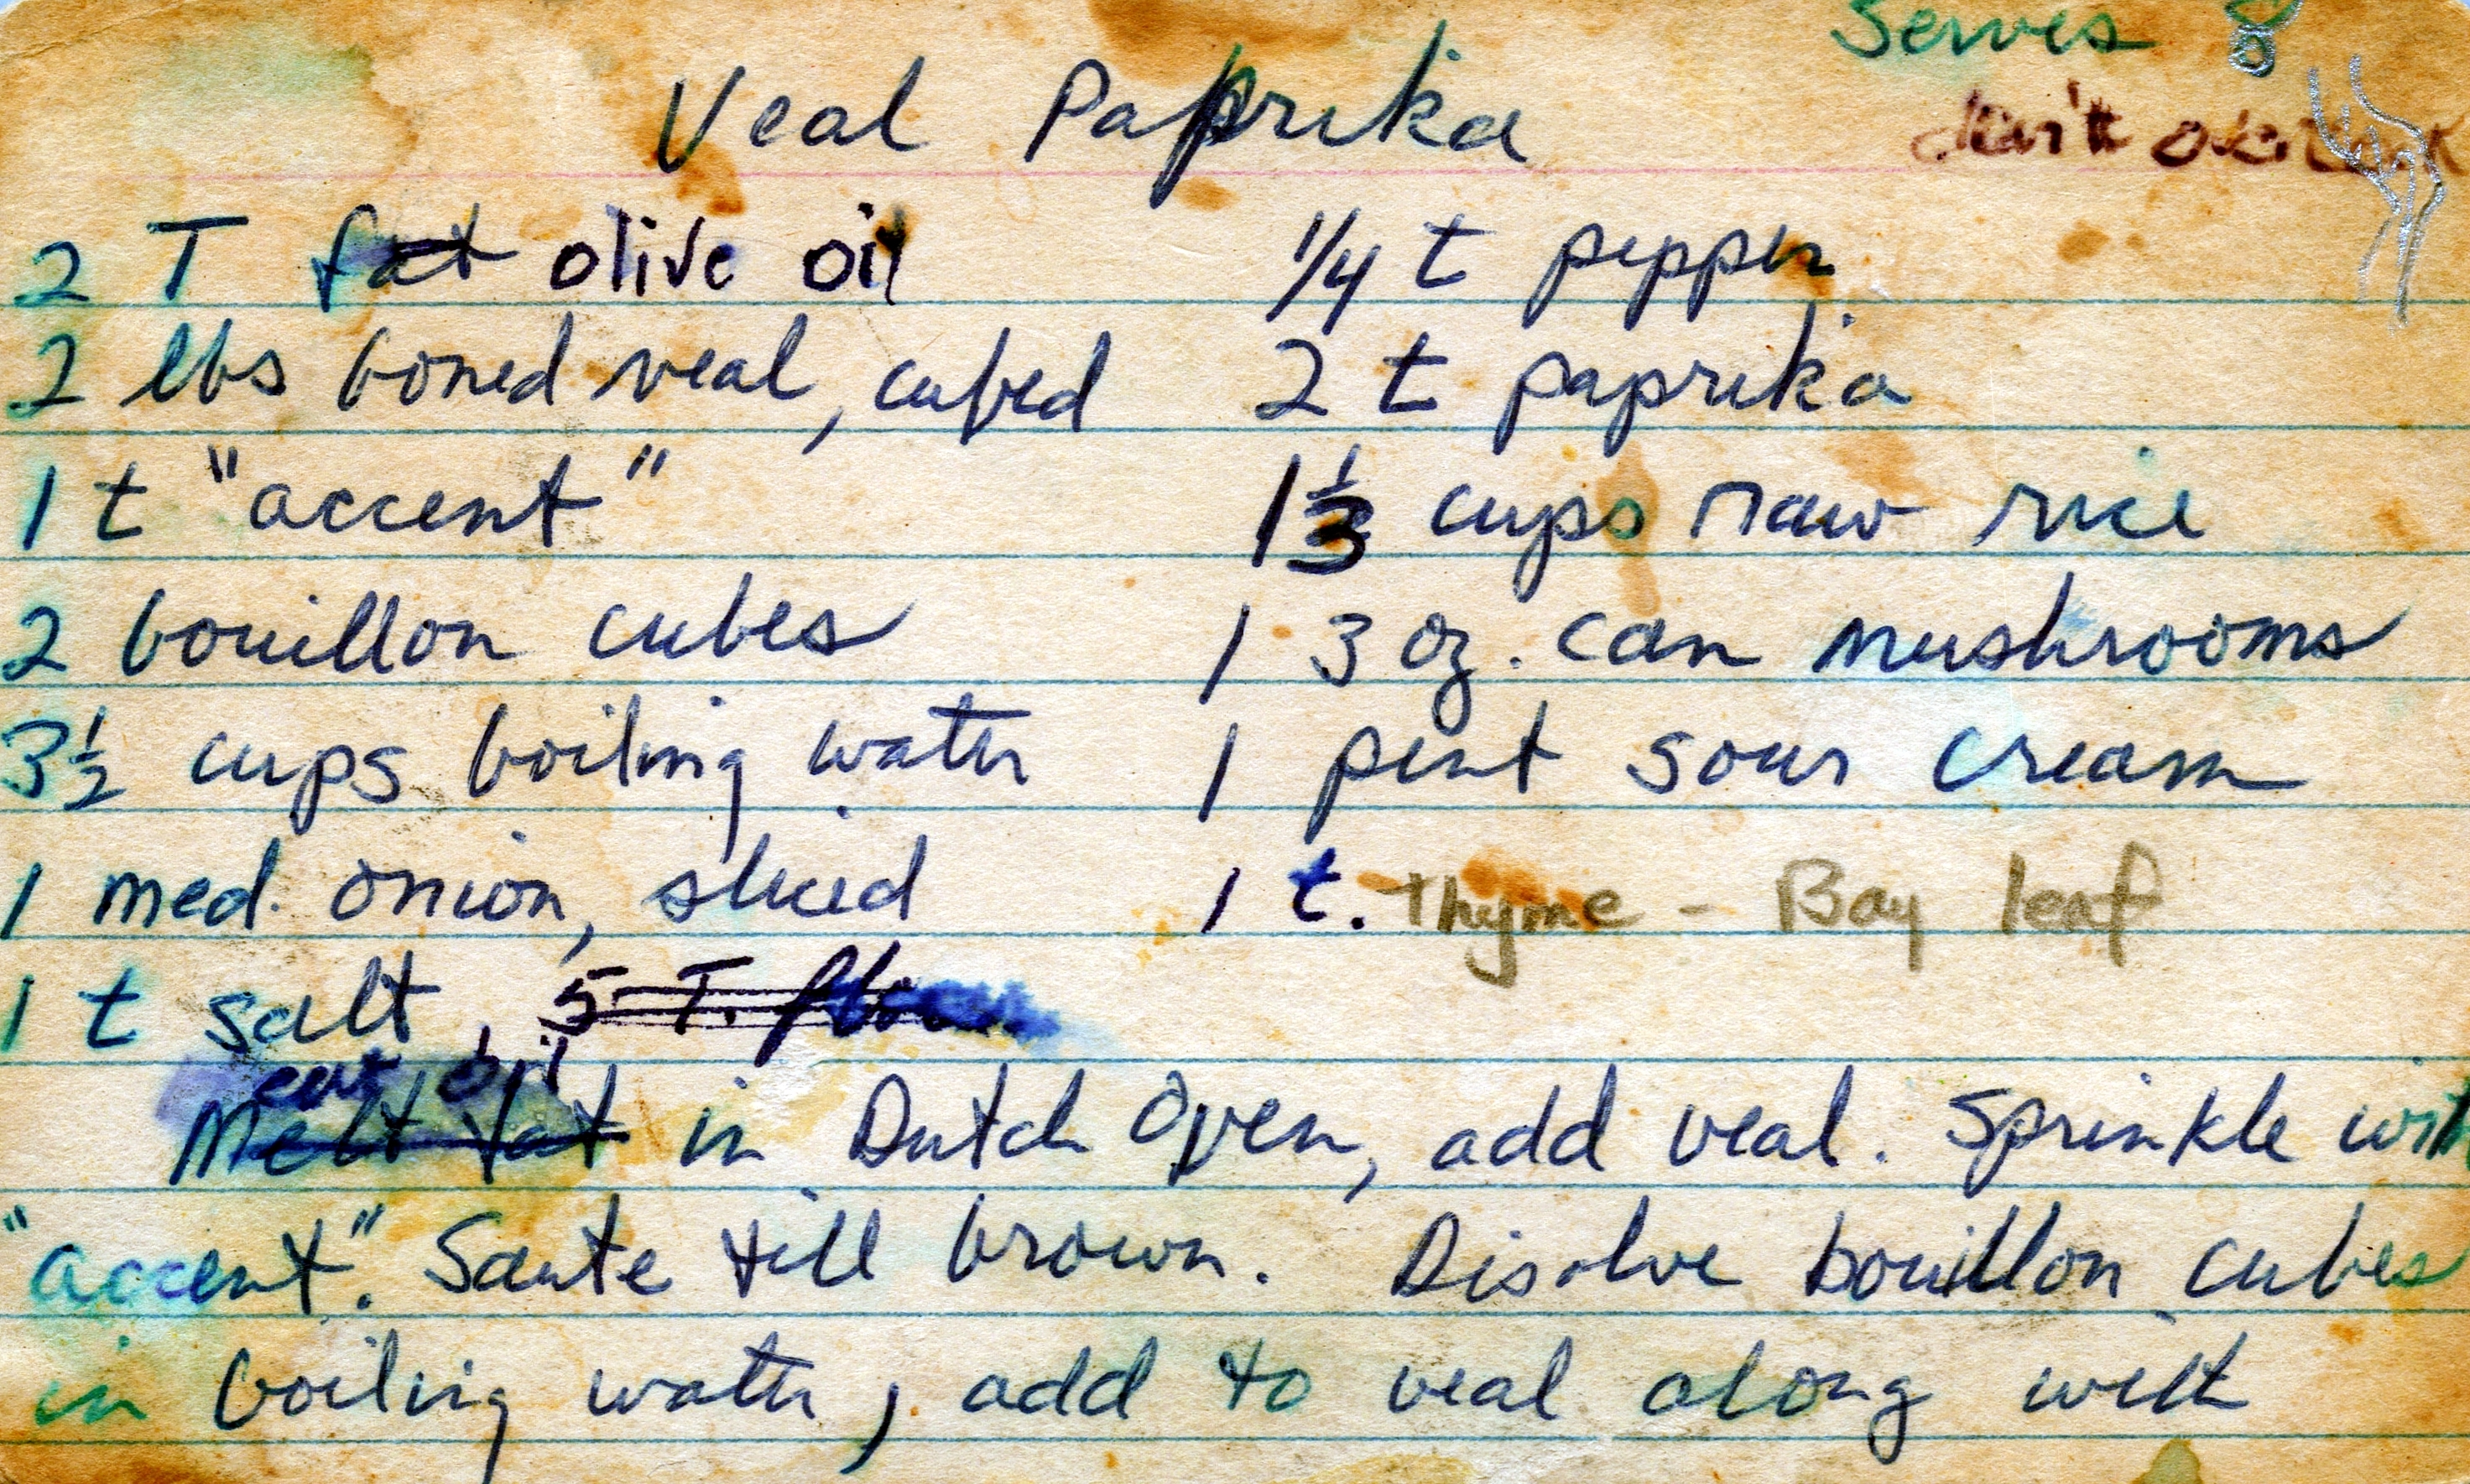 Serves 8
Veal Paprika
don't
2 T fat olive oil
2 lbs boned veal, cubed
1 t "accent"
2 bouillon cubes
3 1/2 cups boiling water
1 med. onion, sliced
1 t salt, 5 T. flour
1/4 t pepper
2 t paprika
1 1/3 cups raw rice
1 3 oz. can mushrooms
1 pint sour cream
1 t. Thyme - Bay leaf
oil
Melt fat in Dutch Oven, add veal. Sprinkle with
"accent". Saute till brown. Disolve bouillon cubes
in boiling water, add to veal along with